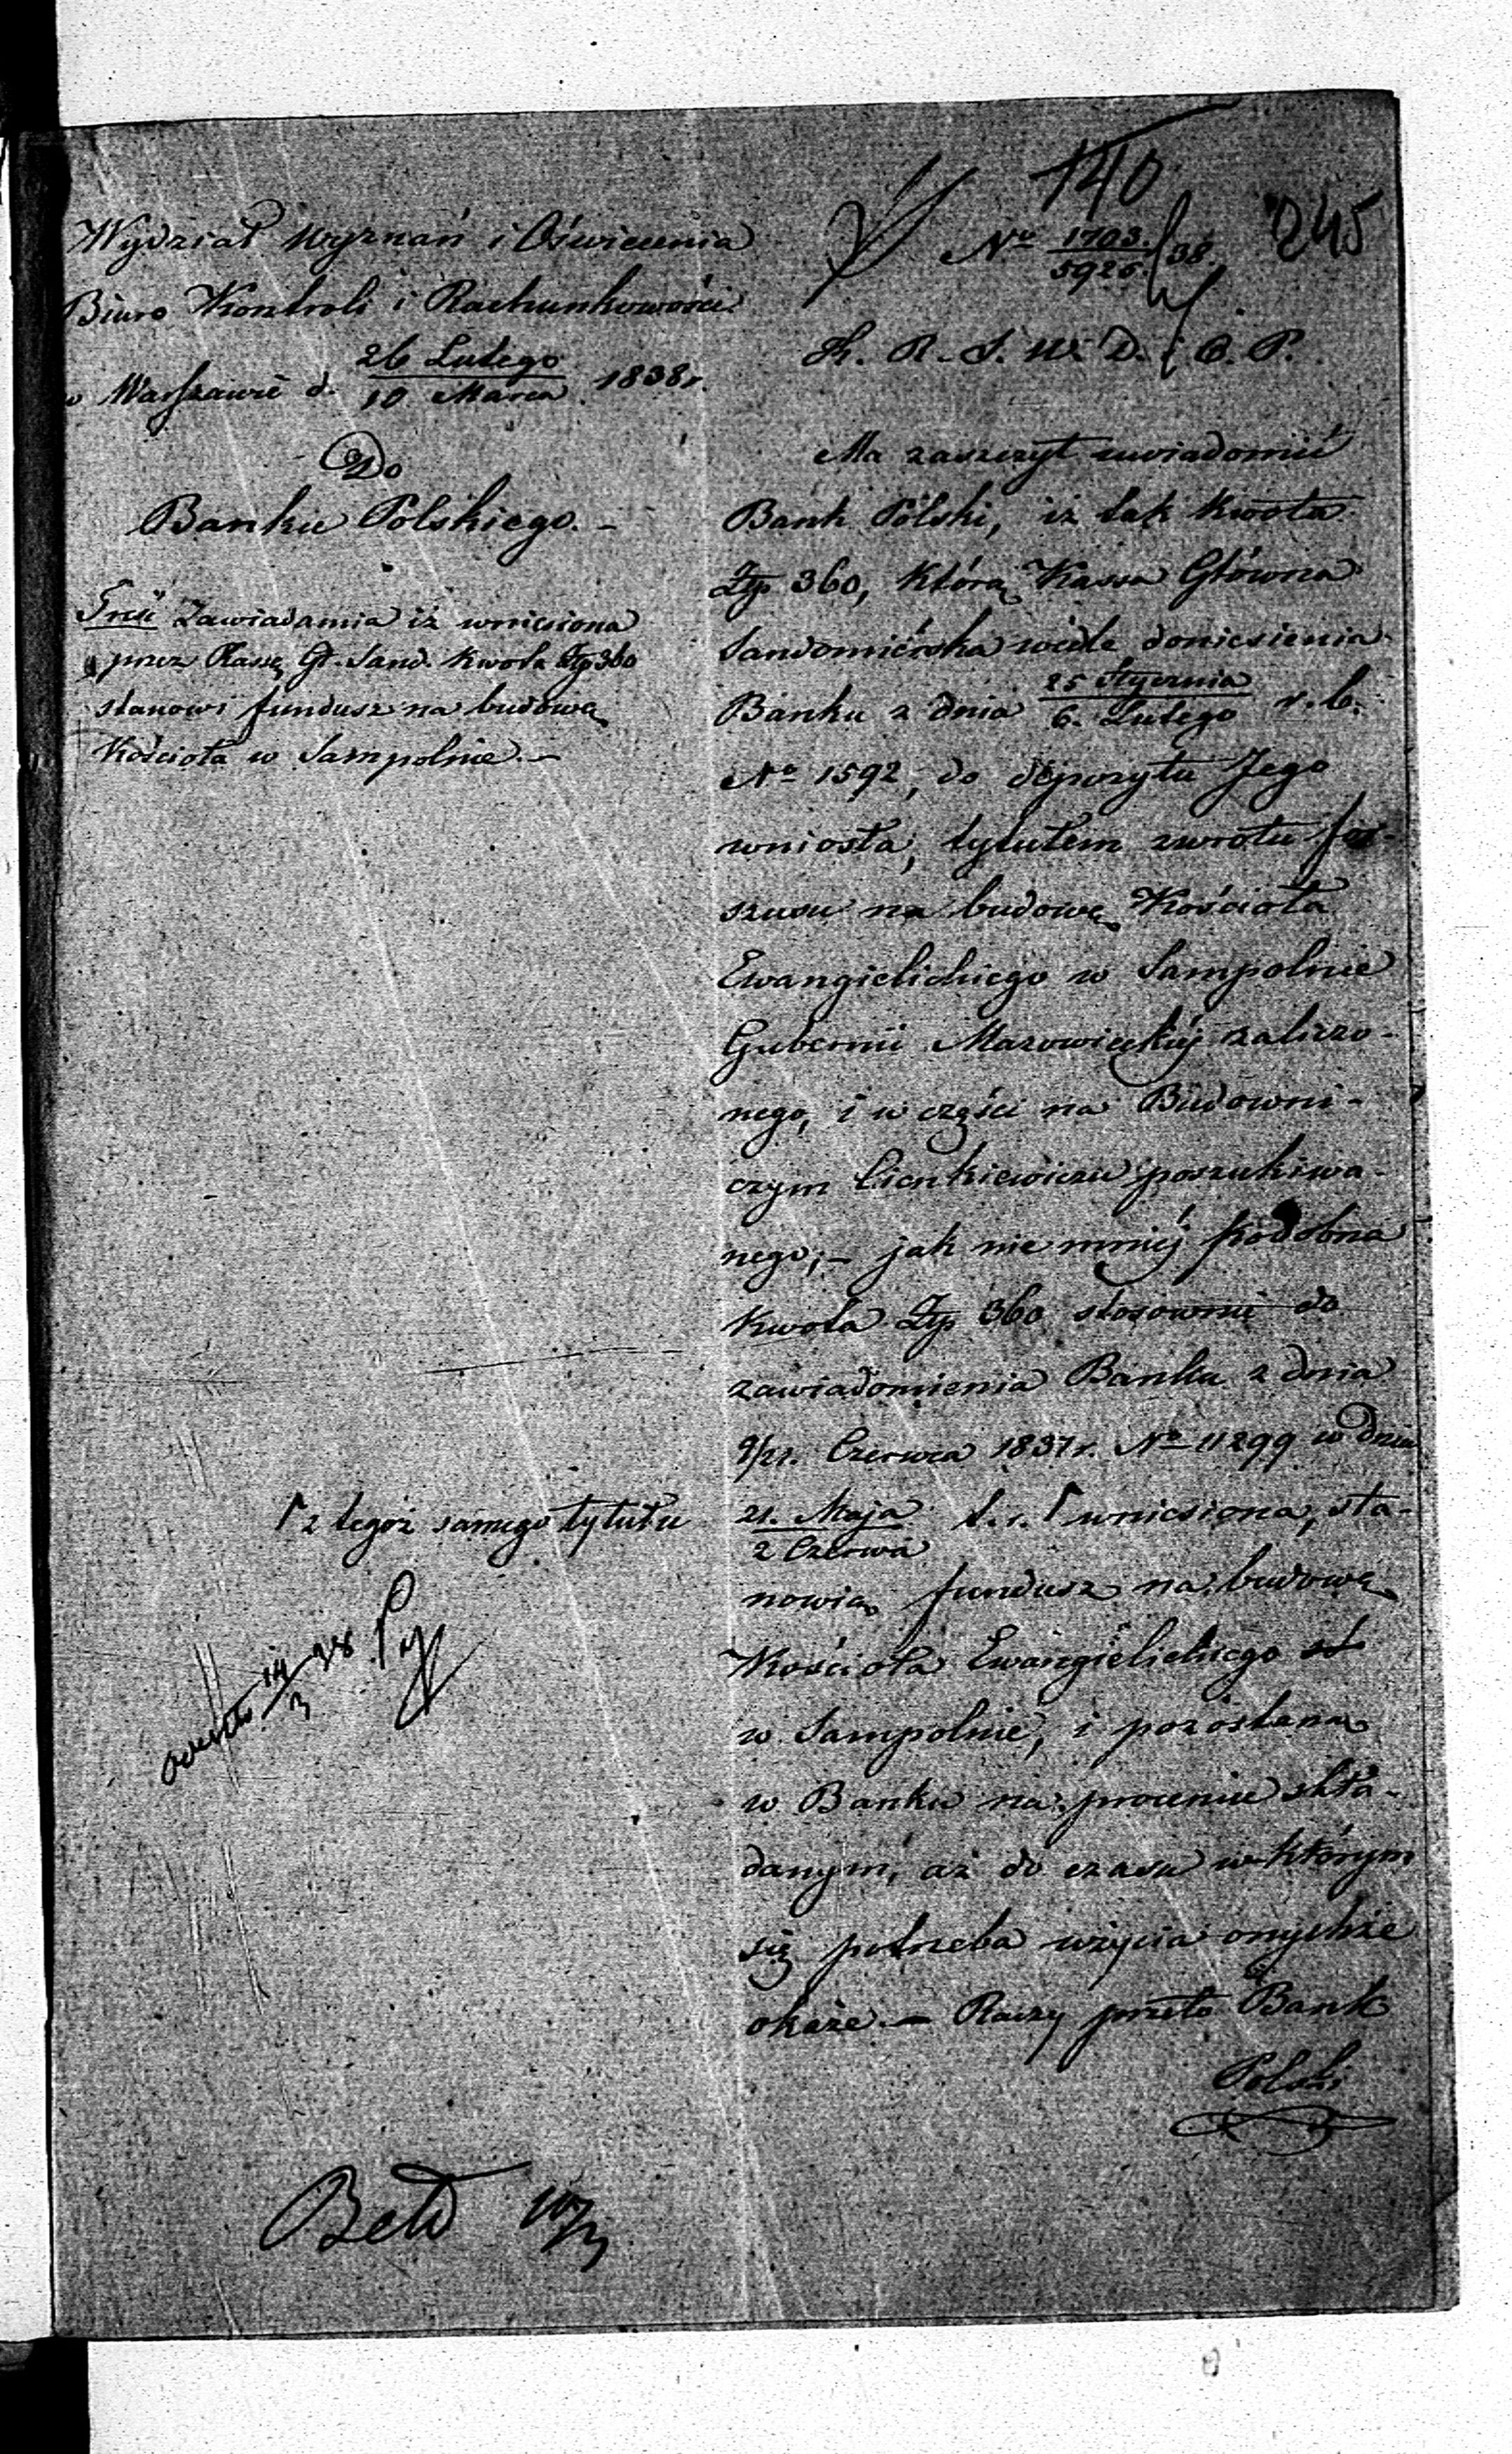 140
245
Wydział Wyznań i Oświecenia
Biuro Kontroli i Rachunkowości
w Warszawie d. 26 Lutego / 10 Marca 1838 r.
Do
Banku Polskiego. –
Treść Zawiadamia iż wniesiona
przez Kassę Gł. Sand. kwota Złp 360
stanowi fundusz na budowę
Kościoła w Sampolnie. –
No 1703. / 5926. /38.
K. R. S. W. D. i O. P.
Ma zaszczyt uwiadomić
Bank Polski, iż tak kwota
Złp 360, którą Kassa Główna
Sandomiérska wedle doniesienia
Banku z dnia 25 Stycznia / 6. Lutego r. b.
No 1592, do depozytu Jego
wniosła, tytułem zwrotu for-
szusu na budowę Kościoła
Ewangielickiego w Sampolnie
Gubernii Mazowieckiéj zaliczo-
nego, i w części na Budowni-
czym Cienkiewiczu poszukiwa-
nego; – jak nie mniéj podobna
kwota Złp 360 stosownie do
zawiadomienia Banku z dnia
9/21. Czerwca 1837 r. No 11299 w dniu
21. Maja / 2 Czerwca t. r. Γ wniesiona, sta-
Γ z tegoż samego tytułu
nowią fundusz na budowę
Kościoła Ewangielickiego
w Sampolnie, i pozostaną
w Banku na procencie skła-
danym, aż do czasu w którym
się potrzeba użycia onychże
okaże. – Raczy przeto Bank
Polski
14/3 38.
10/3